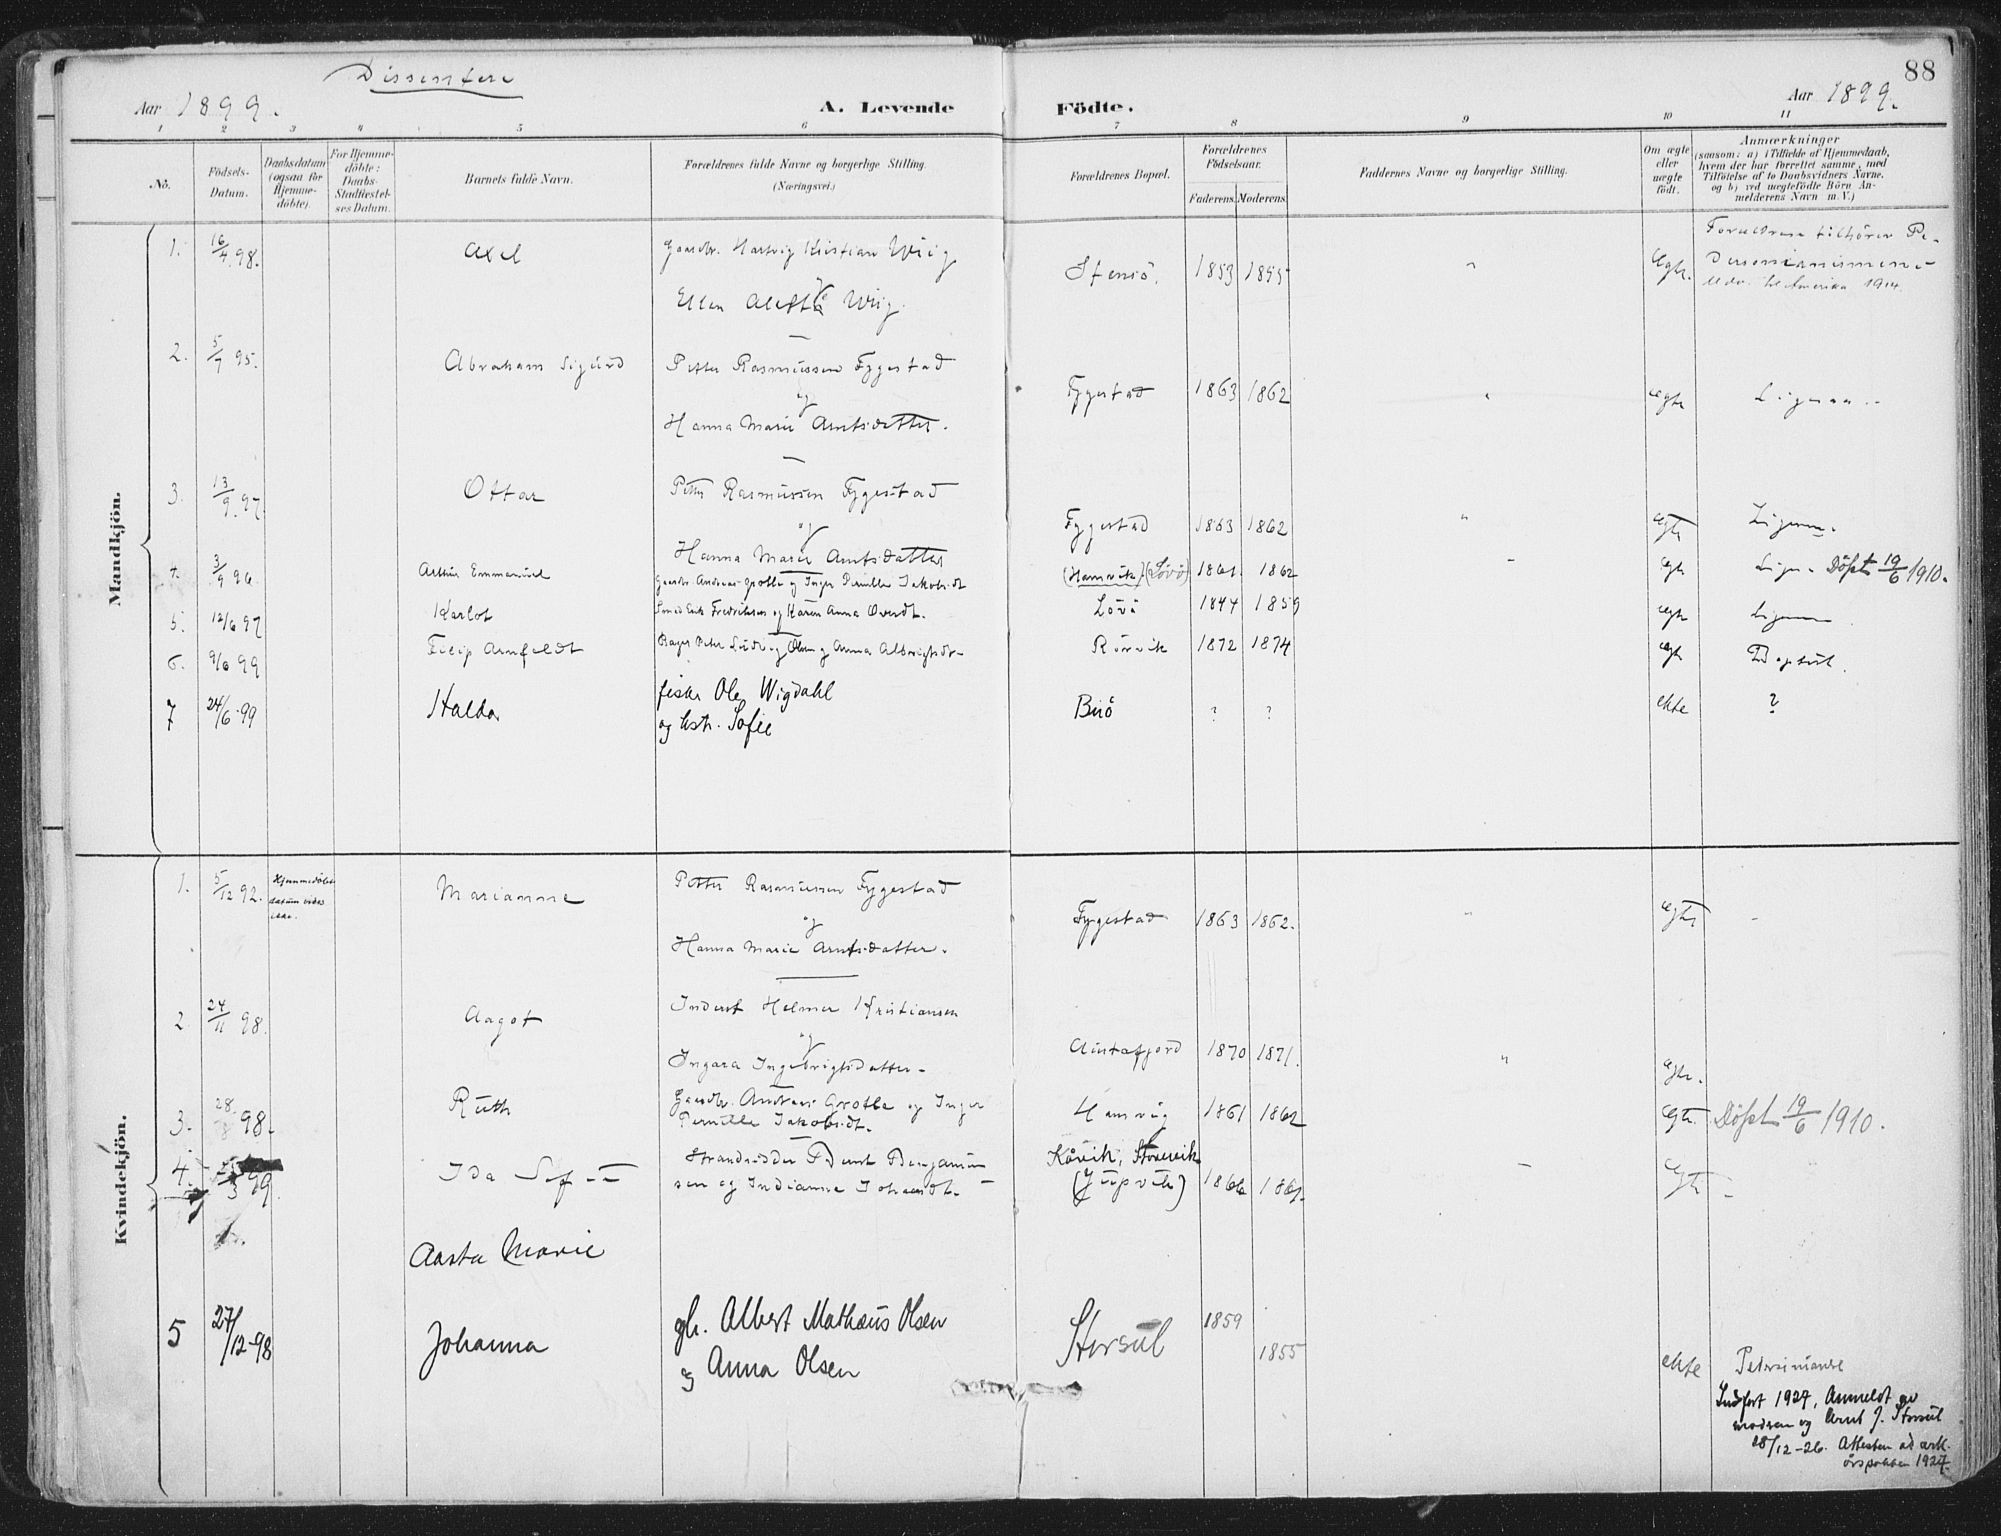 88
Dissentere
Aar 1899.
A. Levende Födte.
Aar 1899.
1 2 3 4 5 6 7 8 9 10 11
No.
Födsels-Datum.
Daabsdatum (ogsaa for Hjemmedöbte).
For Hjemmedöbte: Daabs-Stadfæstelses Datum.
Barnets fulde Navn.
Forældrenes fulde Navne og borgerlige Stilling.
(Næringsvei.)
Forældrenes Bopæl.
Forældrenes Födselsaar.
Faderens. Moderens.
Faddernes Navne og borgerlige Stilling.
Om ægte eller uægte födt.
Anmærkninger
(saasom: a) i Tilfælde af Hjemmedaab, hvem der har forrettet samme, med Tilföielse af to Daabsvidners Navne, og b) ved uægtefödte Börn Anmelderens Navn m. V.)
Mandkjön.
1. 16/4 98. Axel Gaardbr. Hartvig Kristian Wiig
og
Ellen Aletta Wiig.
Stensö. 1853 1855 " Ægte. Forældrene tilhörer Pedersonianismen
Udv. til Amerika 1914.
2. 5/7 95. Abraham Sigurd Petter Rasmussen Fygestad
og
Hanna Marie Arntsdatter.
Fygestad 1863 1862 " Ægte
3. 13/9 97 Ottar Petter Rasmussen Fygestad
og
Hanna Marie Arntsdatter
Fygestad 1863 1862 " Ægte
4. 3/9 96 Arthur Emmanuel Gaardbr. Andreas Grotte og Inger Pernille Jakobsdt
(Hamvik) (Lövö) 1861 1862 Ægte Döpt 19/6 1910.
5. 12/6 97 Karlot Smed Erik Fredriksen og Karen Anna Overdt.
Lövö 1844 1859 Ægte
6. 9/6 99 Filip Arnfeldt Peter Ludvig Olsen og Anna Albrigtdt
Rörvik 1872 1874 Ægte
7 24/6-99 Haldor fisker Ole Wigdahl
og hstr. Sofie
Buö ? ? ekte ?
Kvindekjön.
1. 5/12 92. Hjemmedöbt datum vides ikke. Marianne Petter Rasmussen Fygestad
og
Hanna Marie Arntsdatter.
Fygestad 1863 1862. " Ægte
2. 24/11 98. Aagot Inderst Helmer Kristiansen
og
Ingara Ingebrigtsdatter
Austafjord 1870 1871. " Ægte.
3. 98. Ruth Gaardbr. Andreas Grotte og Inger
Pernille Jakobsdt.
Hamvig 1861 1862 Ægte. Döpt 19/6 1910.
4. 99. Ida Sofie Strandsidder Bernt Benjamin
sen og Indianna Johansdt.
Kåvik, Storevik
1866 Ægte
Aasta Marie
5 27/12-98 Johanna gbr. Albert Mathæus Olsen
og Anna Olsen
Storsul 1859
1855
ekte
Indført 1927, Anmeldt av
modren og Arnt J. Storsul
28/12-26. Attesten ad ark.
1927.